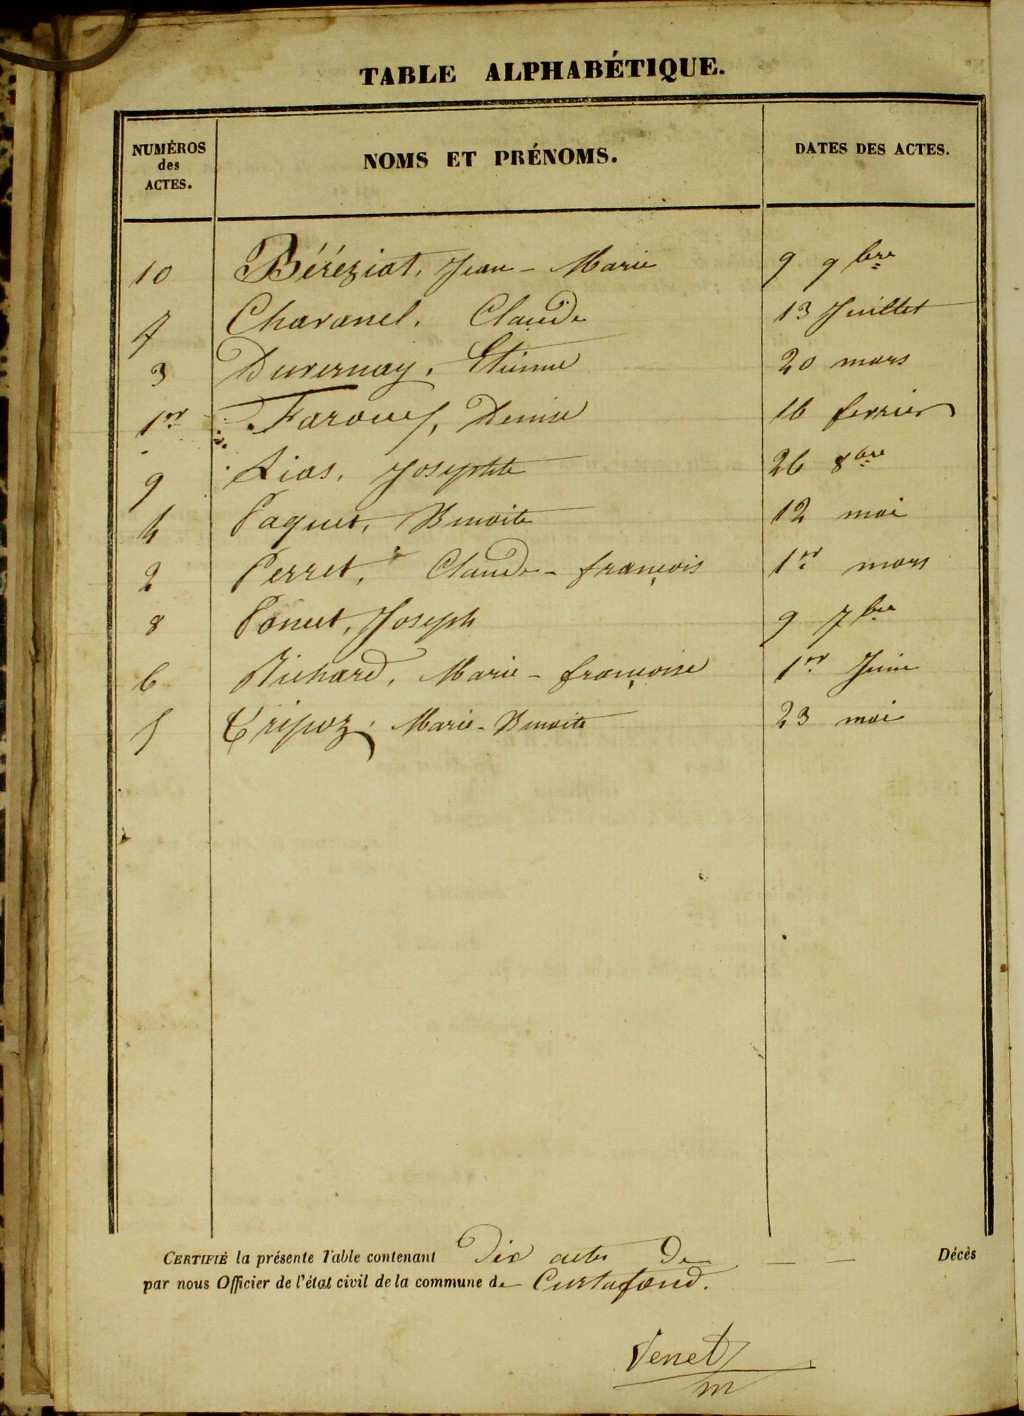 TABLE ALPHABÉTIQUE.
NUMÉROS des ACTES. NOMS ET PRÉNOMS. DATES DES ACTES.
10 Béréziat, Jean-Marie 9 9bre
7 Charanel, Claude 13 Juillet
3 Duvernay, Etienne 20 mars
1er Denise 16 fevrier
9 Lias, Josephte 26 8bre
4 Paquet, Benoite 12 mai
2 Perret, Claude-françois 1er mars
8 Poncet, Joseph 9 7bre
6 Richard, Marie-françoise 1er Juin
5 Tripoz, Marie-Benoite 23 mai
CERTIFIÉ la présente Table contenant Dix actes De — — Décès
par nous Officier de l'état civil de la commune de Curtafond.
Venet
m